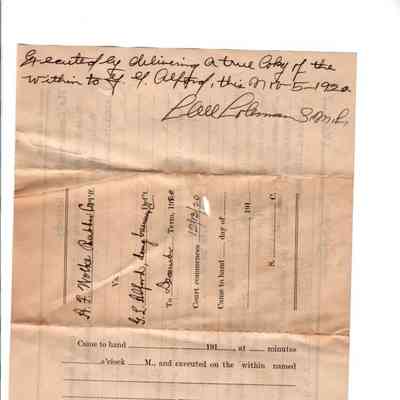 Executed by delivering a true Copy of the
within to G. Y. Alford, this Nov-5-1920.
Coleman S.M.C.
Vs.
G. L. Alford, doing business Def't
To December Term, 1920
Court commences 12/13/20
Came to hand day of
191
S. C.
Came to hand 191 , at minutes
o'clock M., and executed on the within named